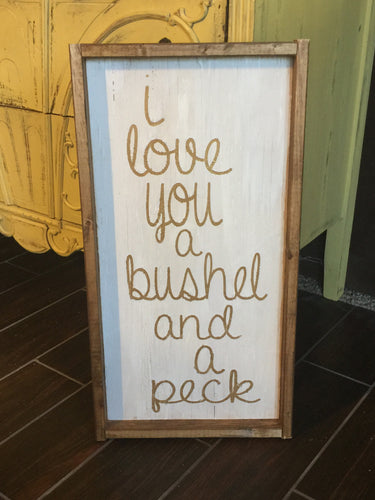 i
love
you
a
bushel
and
a
peck